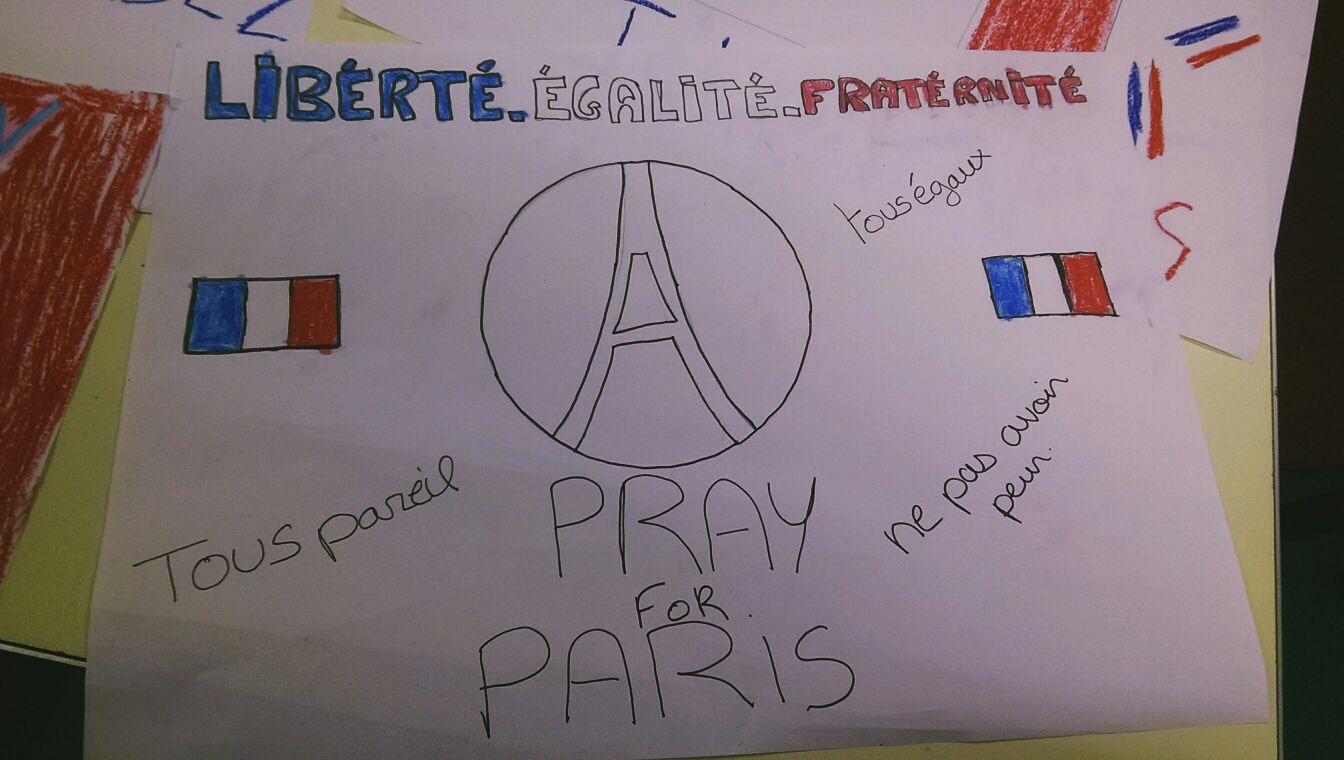 LIBÉRTÉ.ÉGALITÉ.FRATÉRNITÉ
tous égaux
Tous pareil
ne pas avoir
peur.
PRAY
FOR.
PARIS
S